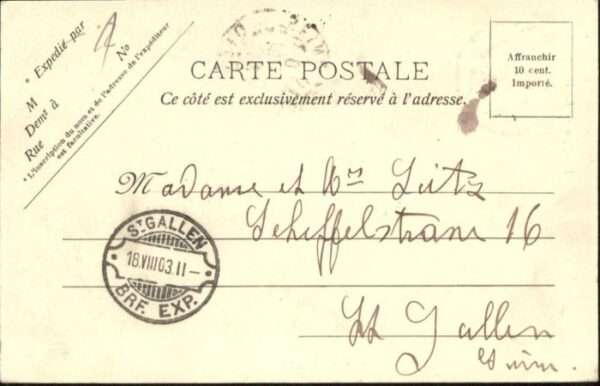 * Expédié par
M
Nº
Demt à
Rue
* L'inscription du nom et de l'adresse de l'expéditeur
est facultative.
CARTE POSTALE
Ce côté est exclusivement réservé à l'adresse.
Affranchir
10 cent.
Importé.
Madame et Mm Lutz
Scheffelstrasse 16
St Gallen
ST GALLEN
18.VIII.03.11-
BRF. EXP.